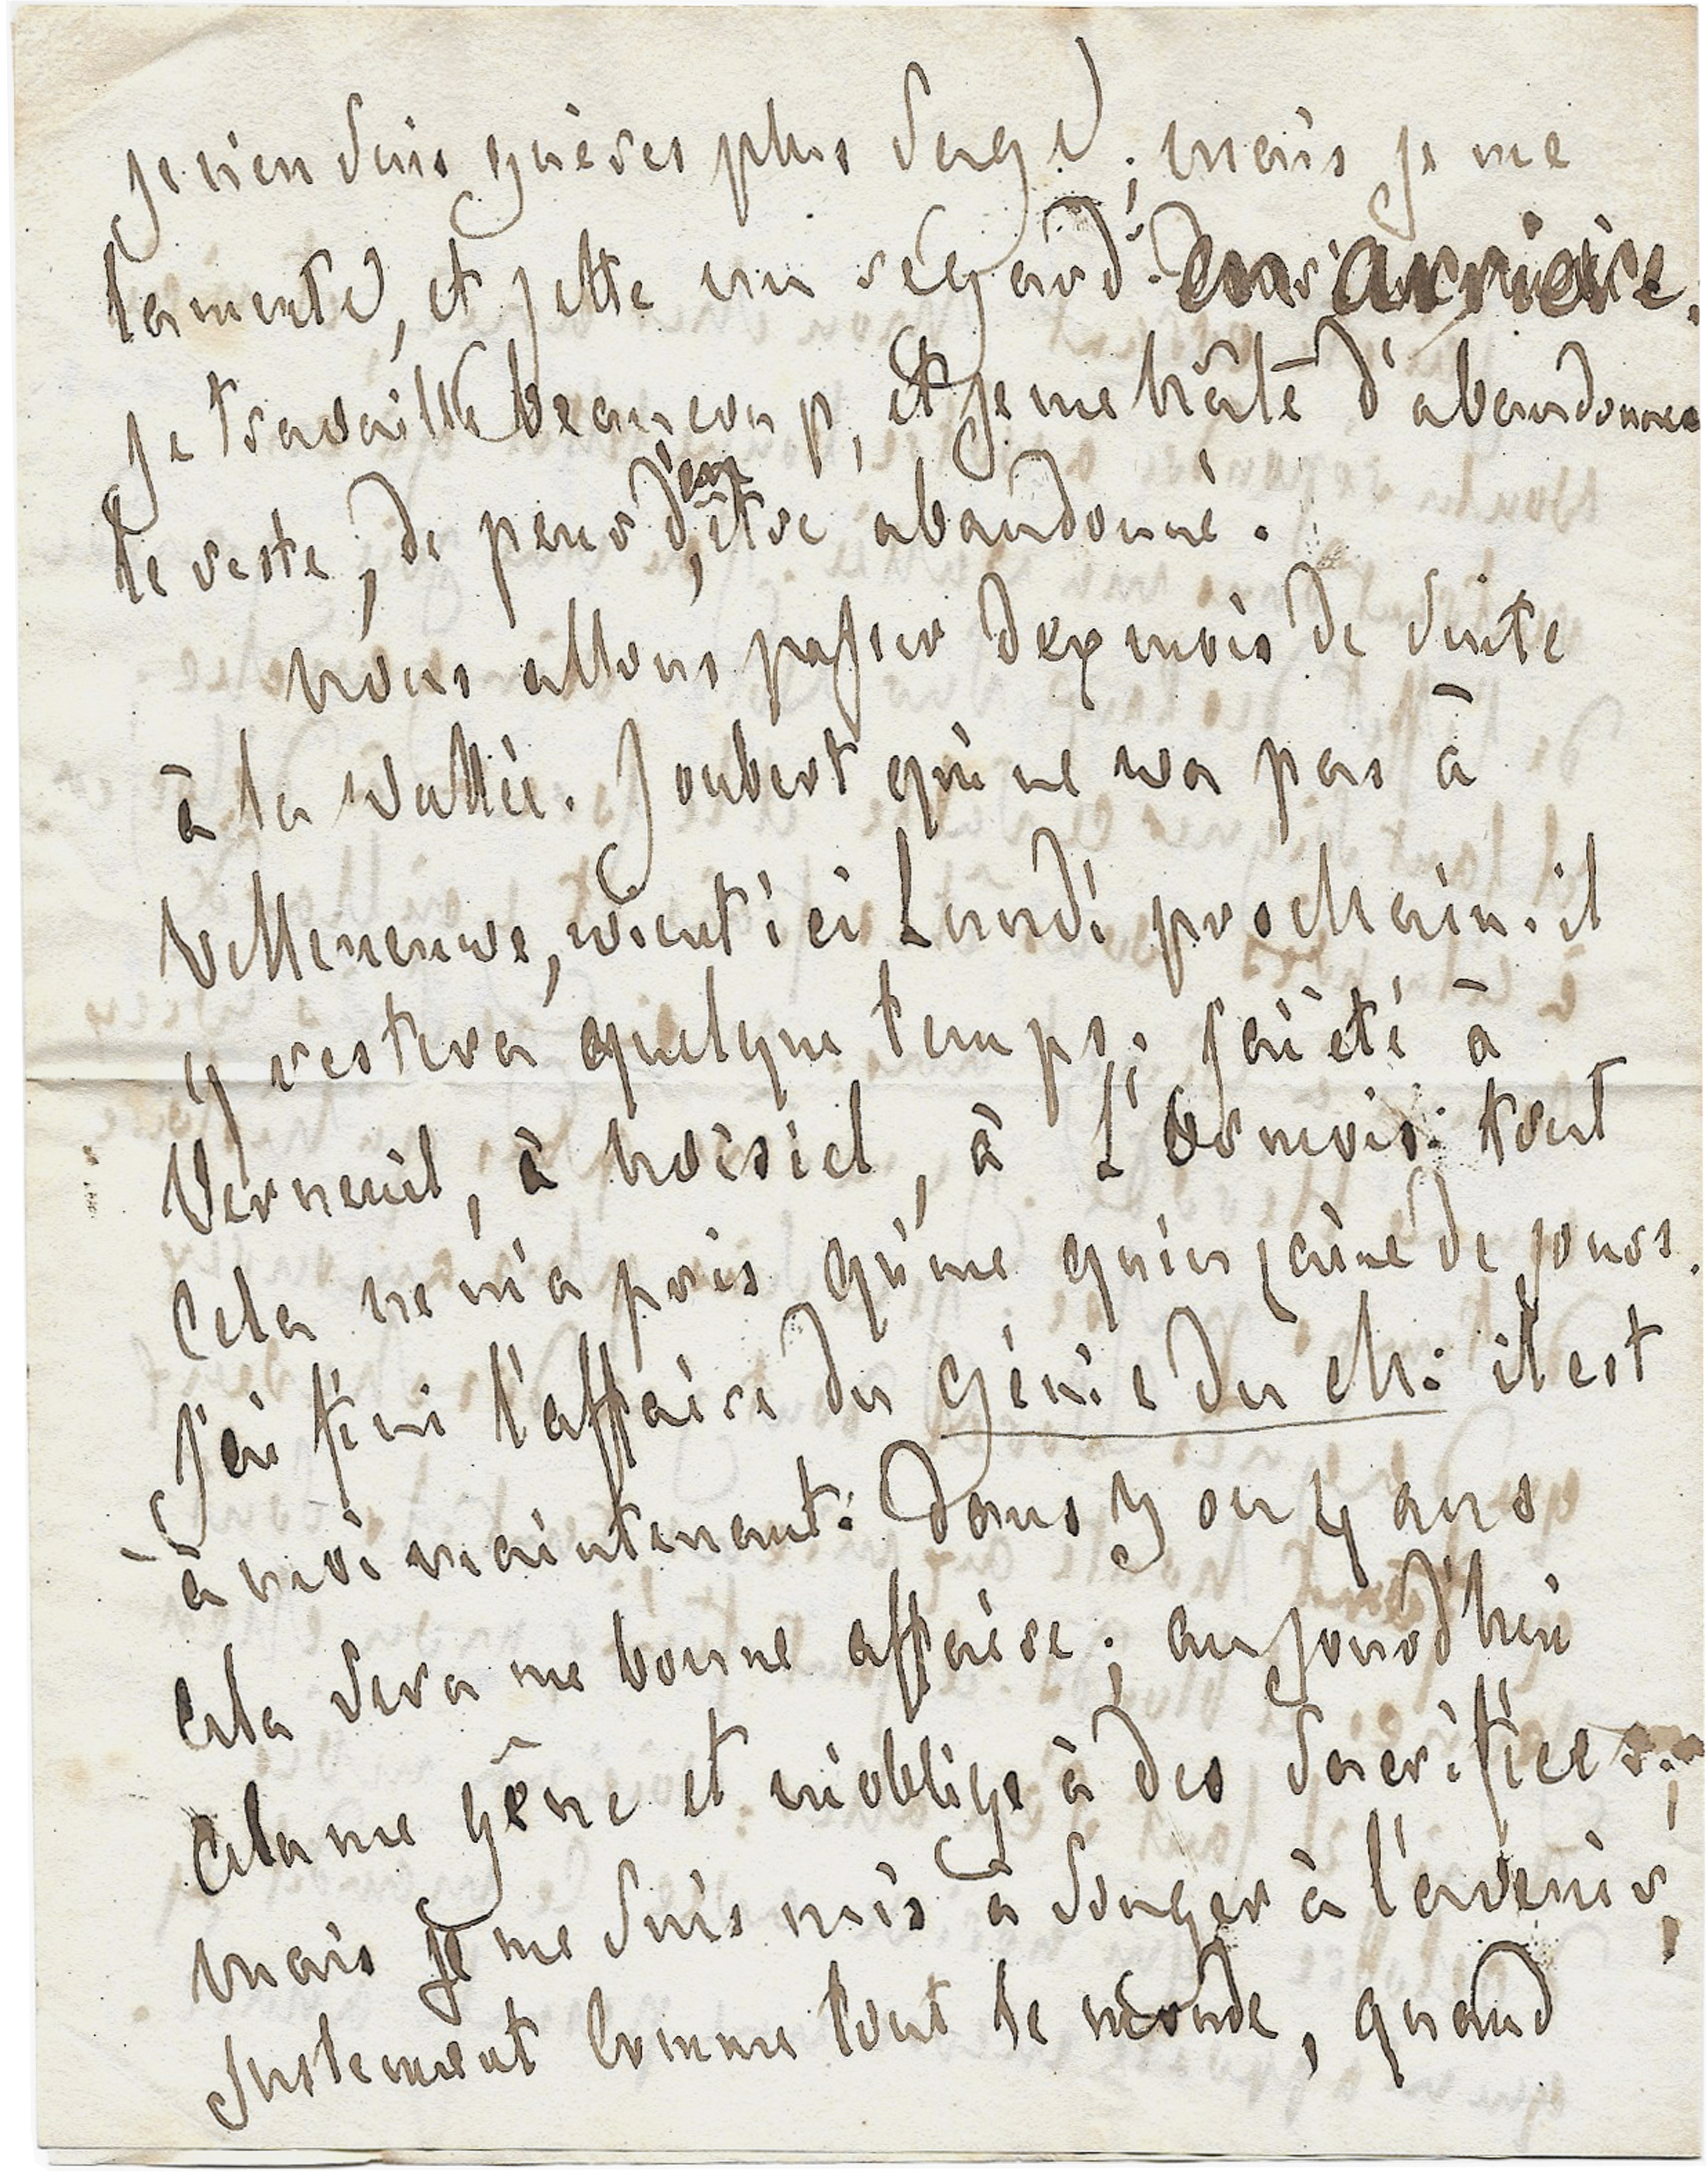 je n'en suis guères plus sage ; mais je me
lamente, et jette un regard en arrière.
je travaille beaucoup, et je me hâte d'abandonner
le reste, de peur d'en être abandonné.
nous allons passer dix mois de suite
à la vallée. Joubert qui ne va pas à
Villeneuve, vient ici Lundi prochain. il
y restera quelque temps. j'ai été à
Verneuil, à noisiel, à L'Ormois. tout
cela ne m'a pris qu'une quinzaine de jours.
J'ai fini l'affaire du génie du ch: il est
à moi maintenant: dans 3 ou 4 ans
cela sera une bonne affaire ; aujourd'hui
cela me gêne et m'oblige à des sacrifices ;
mais je me suis mis à songer à l'avenir,
Justement comme tout le monde, quand